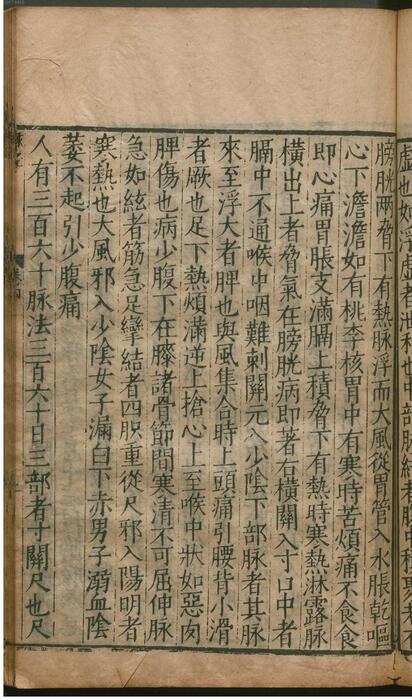 膀胱兩脅下有熱脉浮而大風從胃管入水脹乾嘔
心下澹澹如有桃李核胃中有寒時苦煩痛不食食
即心痛胃脹支滿膈上積脅下有熱時寒熱淋露脉
橫出上者脅氣在膀胱病即著右橫關入寸口中者
膈中不通喉中咽難刺關元入少陰下部脉者其脉
來至浮大者脾也與風集合時上頭痛引腰背小滑
者厥也足下熱煩滿逆上搶心上至喉中狀如惡肉
脾傷也病少腹下在膝諸骨節間寒清不可屈伸脉
急如絃者筋急足攣結者四肢重從尺邪入陽明者
寒熱也大風邪入少陰女子漏白下赤男子溺血陰
萎不起引少腹痛
人有三百六十脉法三百六十日三部者寸關尺也尺